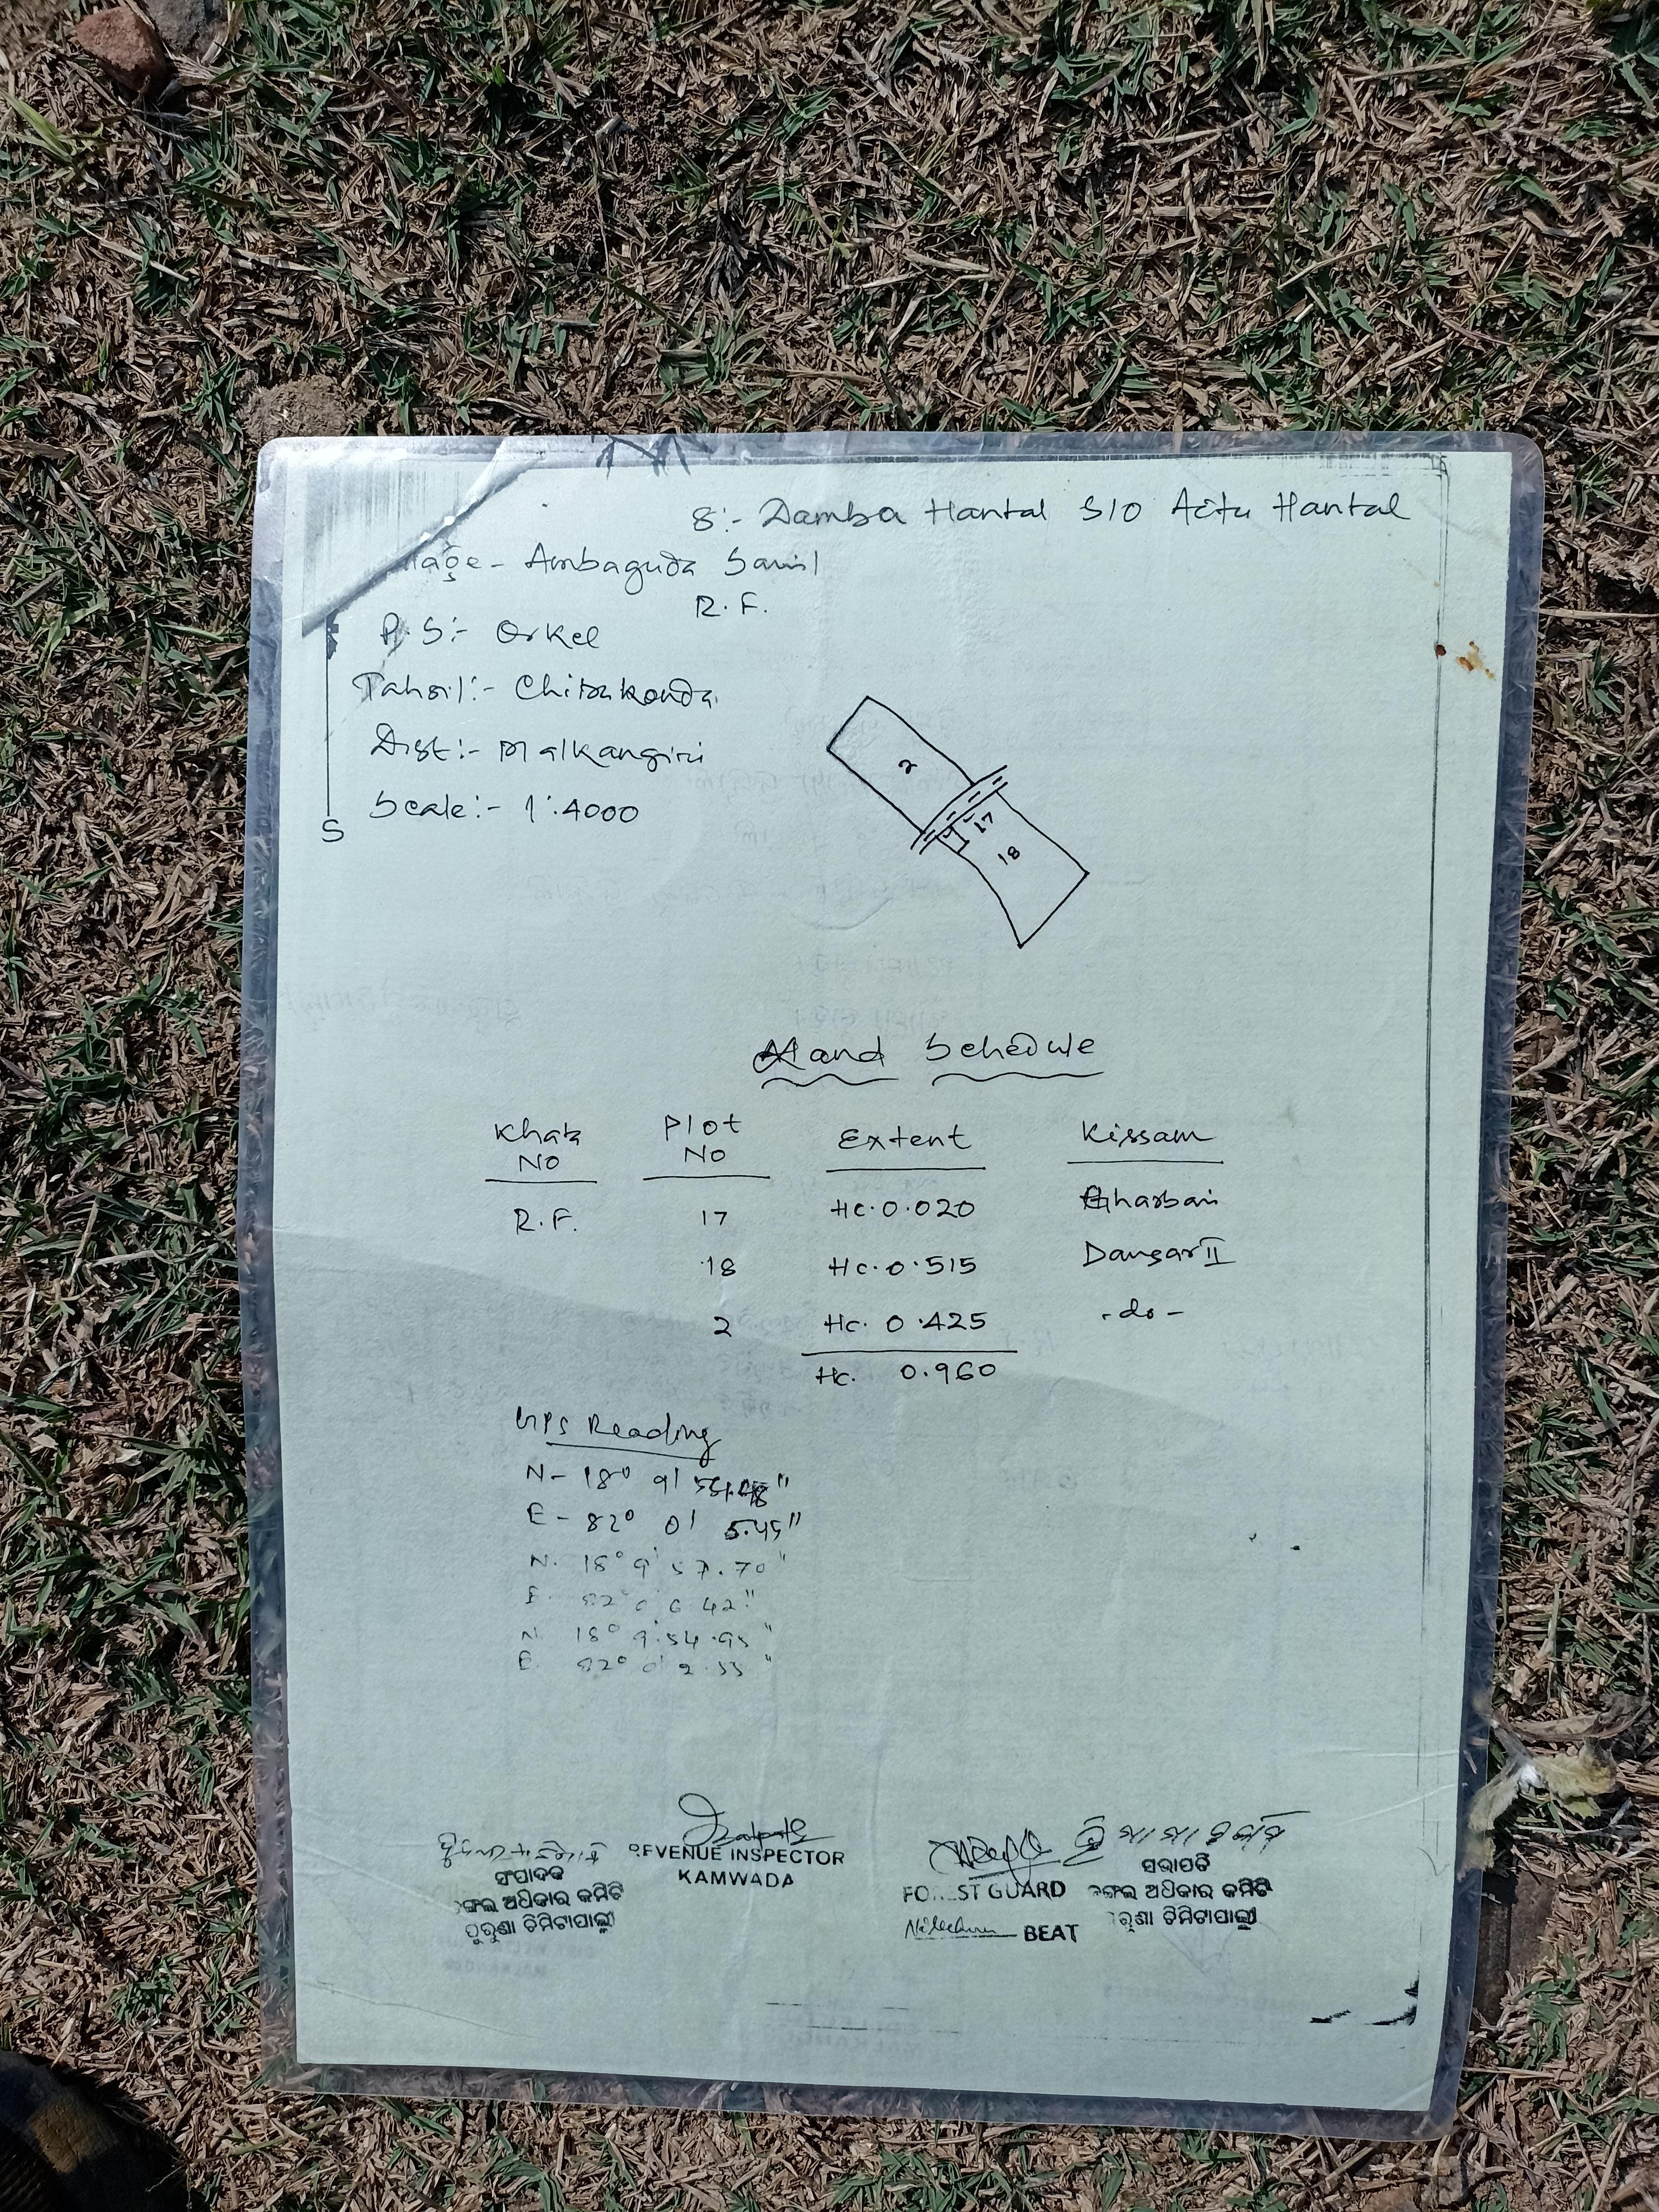 8:- Damba Hantal S/O Aitu Hantal
Ambaguda
R.F.
P.S:- Orkel
Tahsil:- Chitrakonda
Dist:- Malkangiri
Scale:- 1:4000
S
2
17
18
Land Schedule
Khata No Plot No Extent Kissam
R.F. 17 Hc. 0.020 Gharbari
18 Hc. 0.515 Dangar II
2 Hc. 0.425 -do-
Hc. 0.960
GPS Reading
N- 18° 9'
E- 82° 0' 5.45"
N. 18° 9' 57.70"
E. 82° 0' 6.42"
N. 18° 9' 54.95"
E. 82° 0' 2.55"
ସଂପାଦକ
ଜଙ୍ଗଲ ଅଧିକାର କମିଟି
ପୁରୁଣା ଚିମିଟାପାଲ୍ଲୀ
REVENUE INSPECTOR
KAMWADA
FOREST GUARD
BEAT
ସଭାପତି
ଜଙ୍ଗଲ ଅଧିକାର କମିଟି
ପୁରୁଣା ଚିମିଟାପାଲ୍ଲୀ